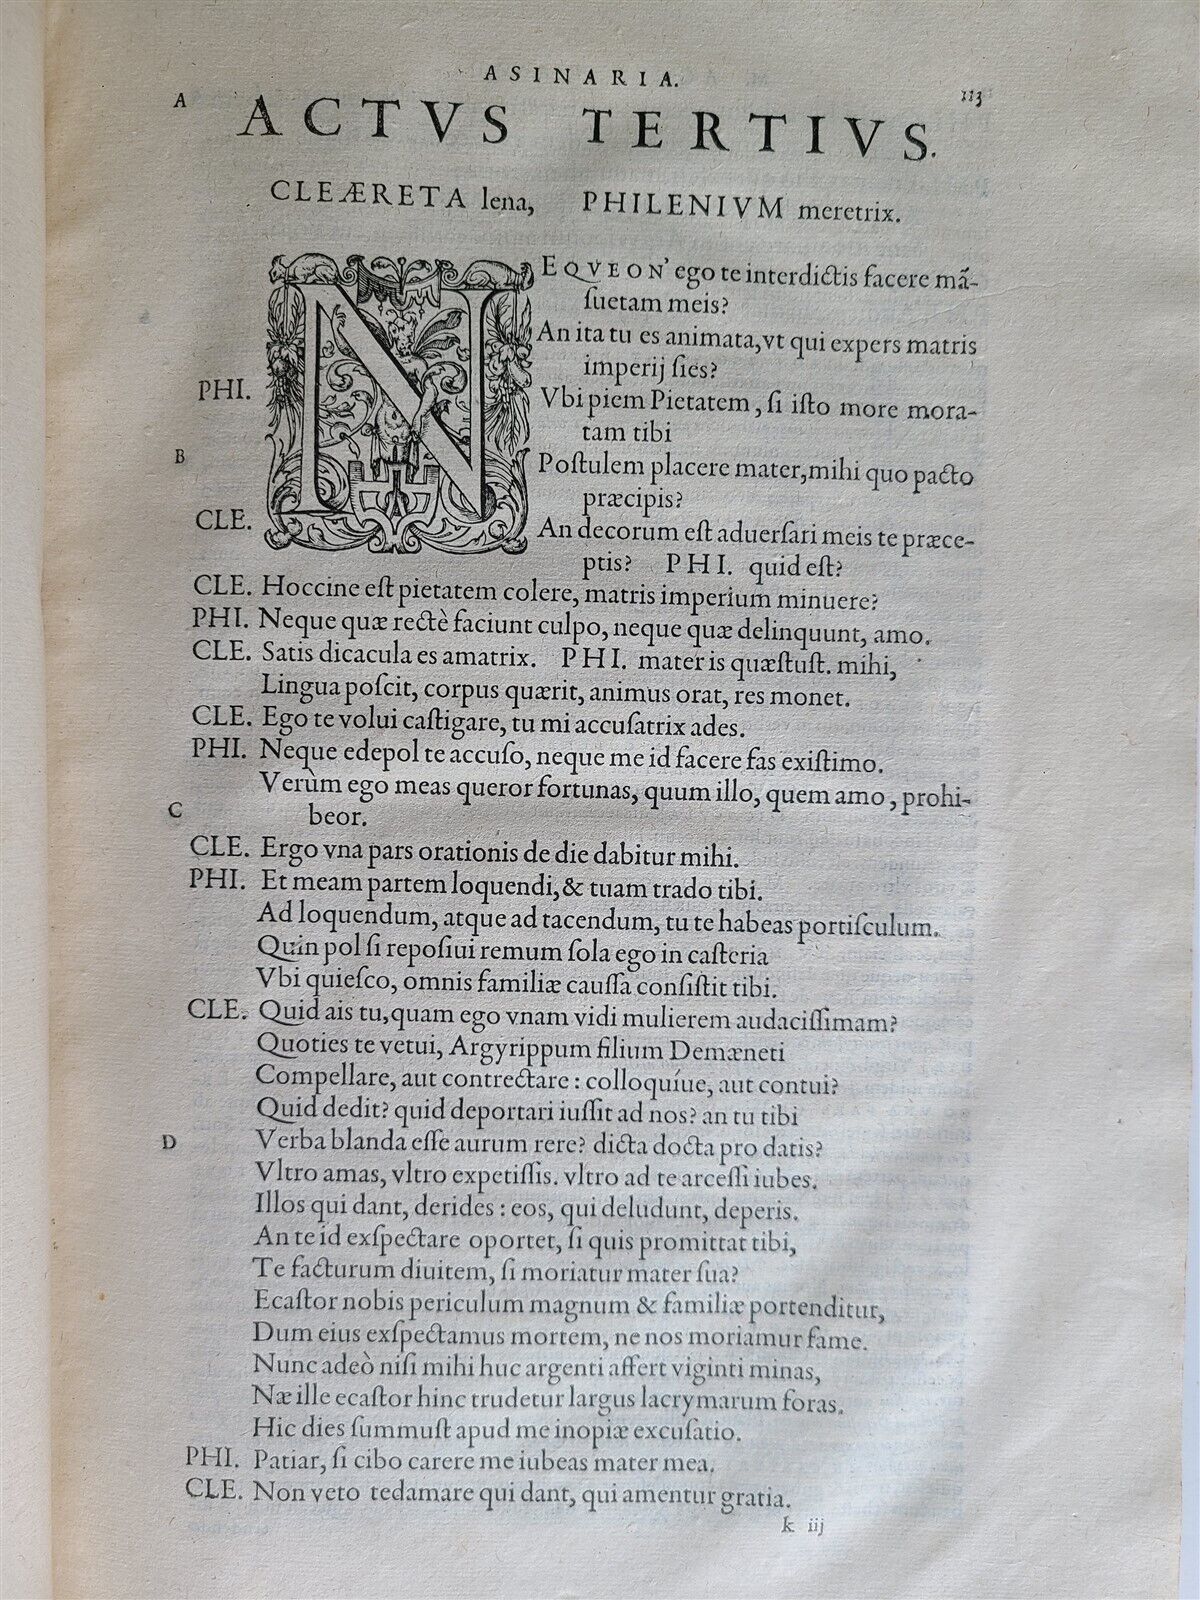 ASINARIA. 113
A
ACTVS TERTIVS.
CLEÆRETA lena, PHILENIVM meretrix.
NEQVEON' ego te interdictis facere mã-
ſuetam meis?
An ita tu es animata, vt qui expers matris
imperij ſies?
PHI. Vbi piem Pietatem, ſi iſto more mora-
tam tibi
B Poſtulem placere mater, mihi quo pacto
præcipis?
CLE. An decorum eſt aduerſari meis te præce-
ptis? PHI. quid eſt?
CLE. Hoccine eſt pietatem colere, matris imperium minuere?
PHI. Neque quæ rectè faciunt culpo, neque quæ delinquunt, amo.
CLE. Satis dicacula es amatrix. PHI. mater is quæſtuſt. mihi,
Lingua poſcit, corpus quærit, animus orat, res monet.
CLE. Ego te volui caſtigare, tu mi accuſatrix ades.
PHI. Neque edepol te accuſo, neque me id facere fas exiſtimo.
Verùm ego meas queror fortunas, quum illo, quem amo, prohi-
C beor.
CLE. Ergo vna pars orationis de die dabitur mihi.
PHI. Et meam partem loquendi, & tuam trado tibi.
Ad loquendum, atque ad tacendum, tu te habeas portiſculum.
Quin pol ſi repoſiui remum ſola ego in caſteria
Vbi quieſco, omnis familiæ cauſſa conſiſtit tibi.
CLE. Quid ais tu, quam ego vnam vidi mulierem audaciſſimam?
Quoties te vetui, Argyrippum filium Demæneti
Compellare, aut contrectare: colloquíue, aut contui?
Quid dedit? quid deportari iuſſit ad nos? an tu tibi
D Verba blanda eſſe aurum rere? dicta docta pro datis?
Vltro amas, vltro expetiſſis. vltro ad te arceſſi iubes.
Illos qui dant, derides: eos, qui deludunt, deperis.
An te id exſpectare oportet, ſi quis promittat tibi,
Te facturum diuitem, ſi moriatur mater ſua?
Ecaſtor nobis periculum magnum & familiæ portenditur,
Dum eius exſpectamus mortem, ne nos moriamur fame.
Nunc adeò niſi mihi huc argenti affert viginti minas,
Næ ille ecaſtor hinc trudetur largus lacrymarum foras.
Hic dies ſummuſt apud me inopiæ excuſatio.
PHI. Patiar, ſi cibo carere me iubeas mater mea.
CLE. Non veto tedamare qui dant, qui amentur gratia.
k iij